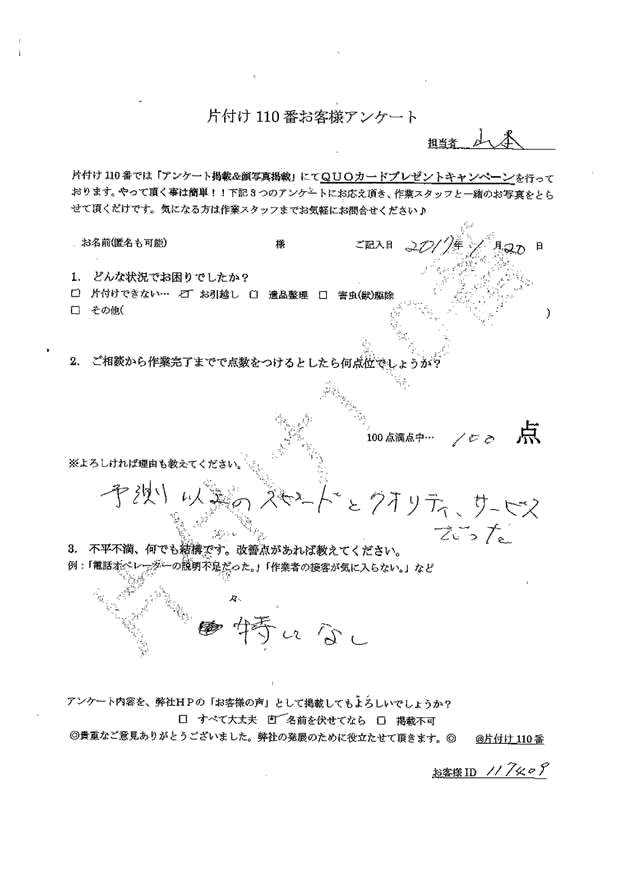 片付け 110 番お客様アンケート
担当者 山本
片付け 110 番では「アンケート掲載&顔写真掲載」にてQUOカードプレゼントキャンペーンを行って
おります。やって頂く事は簡単！！下記 3 つのアンケートにお応え頂き、作業スタッフと一緒のお写真をとら
せて頂くだけです。気になる方は作業スタッフまでお気軽にお問合せください♪
お名前(匿名も可能) 様 ご記入日 2017 年 1 月 20 日
1. どんな状況でお困りでしたか？
□ 片付けできない… ☑ お引越し □ 遺品整理 □ 害虫(獣)駆除
□ その他( )
2. ご相談から作業完了までで点数をつけるとしたら何点位でしょうか？
100 点満点中… 100 点
※よろしければ理由も教えてください。
予測以上のスピードとクオリティ、サービス
だった
3. 不平不満、何でも結構です。改善点があれば教えてください。
例：「電話オペレーターの説明不足だった。」「作業者の接客が気に入らない。」など
特になし
アンケート内容を、弊社ＨＰの「お客様の声」として掲載してもよろしいでしょうか？
□ すべて大丈夫 ☑ 名前を伏せてなら □ 掲載不可
◎貴重なご意見ありがとうございました。弊社の発展のために役立たせて頂きます。◎ @片付け 110 番
お客様 ID 117409
片付け110番